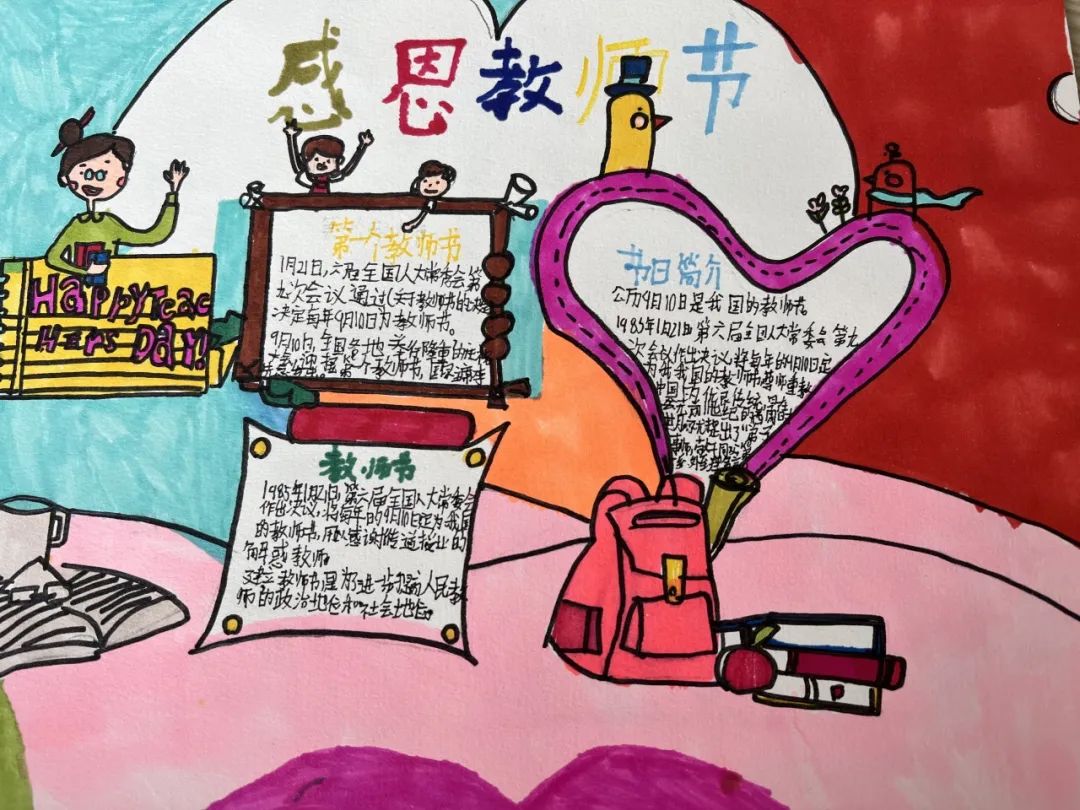 感恩教师节
Happy Teac
Hers Day!
第一个教师节
1月21日,六届全国人大常委会第
九次会议通过《关于教师节的
决定每年9月10日为教师节。
9月10日,全国各地举行隆重的
第一个教师节,国
节日简介
公历9月10日是我国的教师节。
1985年1月21日第六届全国人大常委会第九
次会议作出决议,将每年的9月10日定
为我国的教师节尊师重教
中国
就提出了
教师节
1985年1月21日,第六届全国人大常委会
作出决议,将每年的9月10日定为我国
的教师节,用以感谢传道授业的
解惑教师
建立教师节是为了进一步提高人民教
师的政治地位和社会地位。